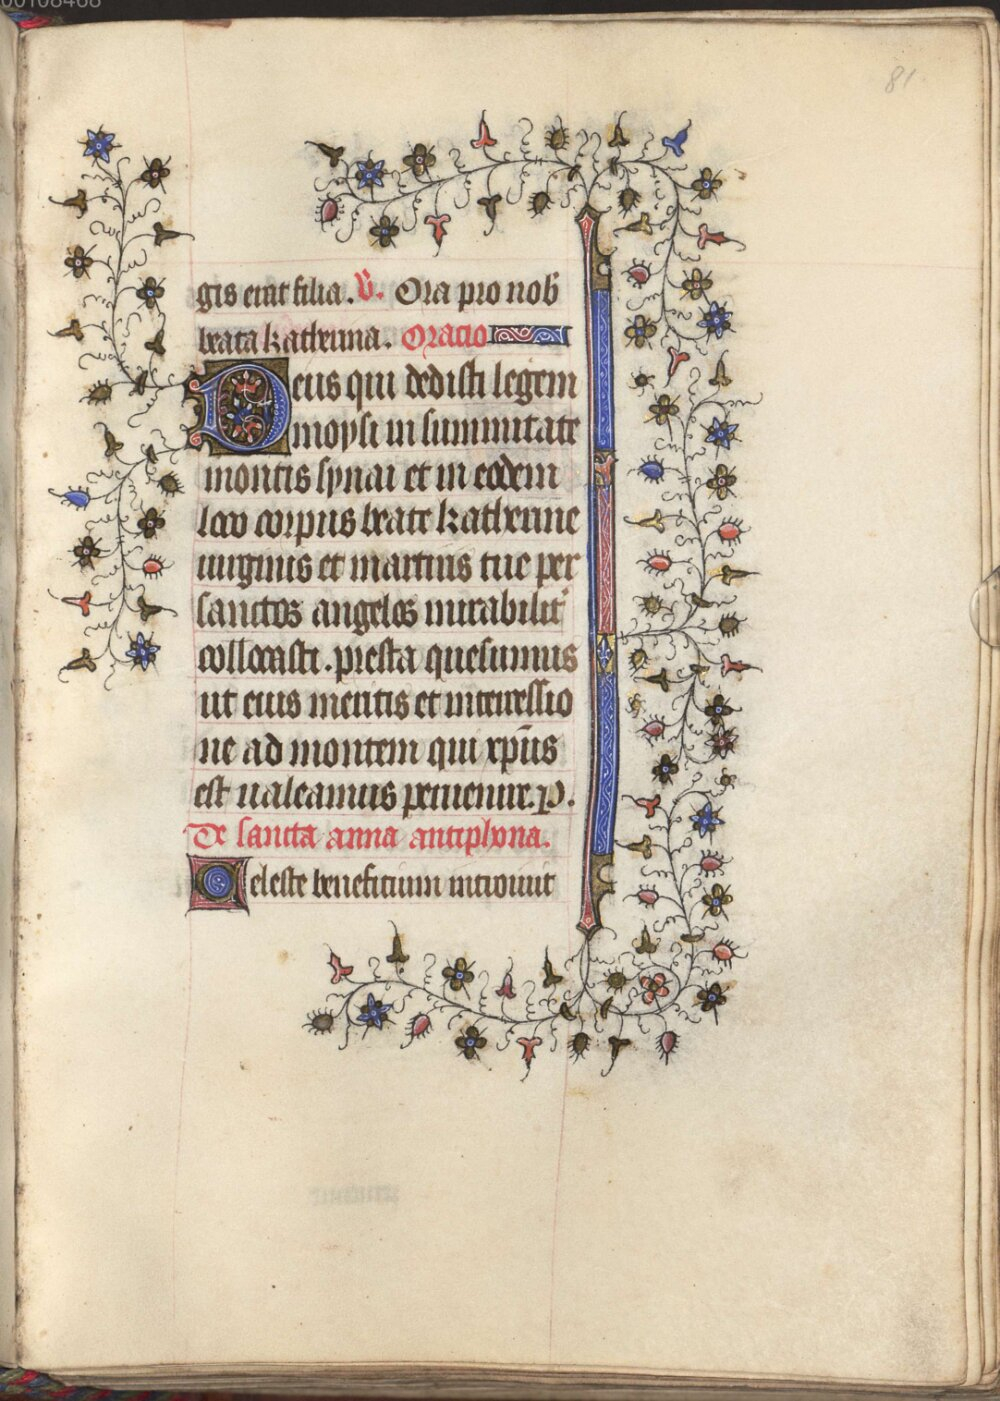 00108468
81
gis erat filia. V. Ora pro nob̄
beata katherina. Oratio
Deus qui dedisti legem
moysi in summitate
montis synai et in eodem
loco corpus beate katherine
uirginis et martiris tue per
sanctos angelos mirabilit̄
collocasti. presta quesumus
ut eius meritis et intercessio
ne ad montem qui xp̄us
est ualeamus peruenire. P.
De sancta anna antiphona.
Celeste beneficium introiuit